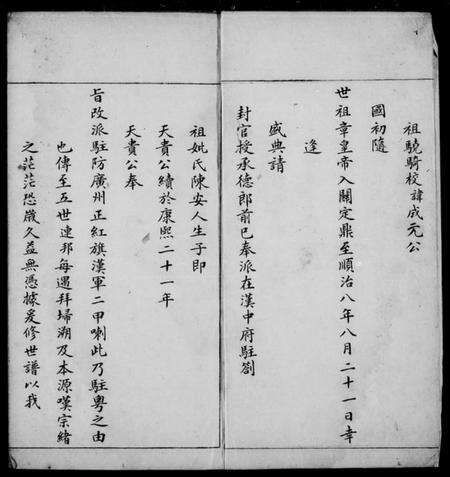 祖驍騎校諱成元公
國初隨
世祖章皇帝入關定鼎至順治八年八月二十一日幸
逢
盛典請
封官授承德郎前已奉派在漢中府駐劄
祖妣氏陳安人生子即
天貴公續於康熙二十一年
天貴公奉
旨改派駐防廣州正紅旗漢軍二甲喇此乃駐粵之由
也傳至五世連邦每遇拜埽溯及本源嘆宗緒
之茫茫恐歲久益無憑據爰修世譜以我